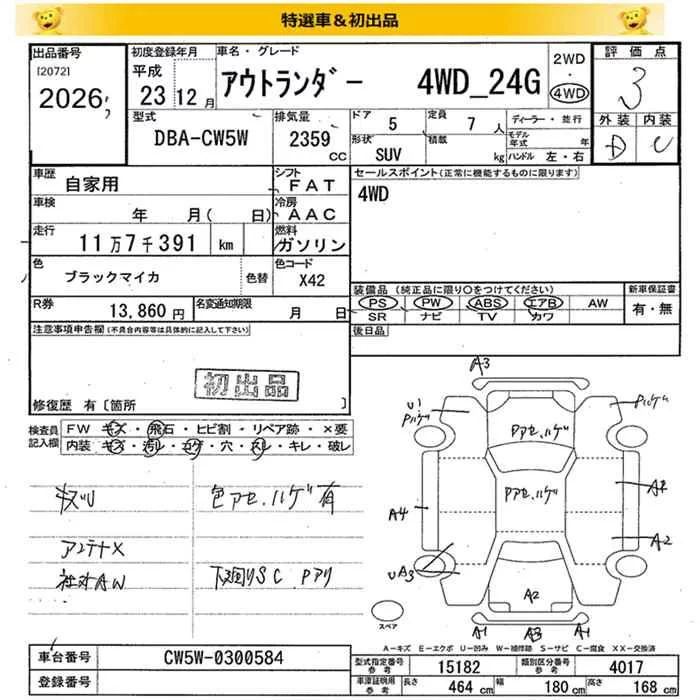 特選車＆初出品
出品番号
[2072]
2026
初度登録年月
平成
23 12月
車名・グレード
アウトランダー 4WD_24G
2WD
・
4WD
評価点
3
外装 内装
D C
型式
DBA-CW5W
排気量
2359
CC
ドア 5
定員 7 人
形状 SUV
積載 kg
ディーラー・並行
モデル年式 年
ハンドル 左・右
車歴 自家用
シフト FAT
車検 年 月( 日)
冷房 AAC
走行 11万7千391 km
燃料 ガソリン
色 ブラックマイカ 色替
色コード X42
R券 13,860円
名変通知期限 月 日
セールスポイント(正常に機能するものに限ります)
4WD
装備品(純正品に限り〇をつけてください)
新車保証書
PS PW ABS エアB AW
SR ナビ TV カワ
有・無
後日品
注意事項申告欄(不具合内容等は具体的に記入して下さい)
初出品
修復歴 有〔箇所 〕
検査員記入欄
FW キズ・飛石・ヒビ割・リペア跡・×要
内装 キズ・汚レ・コゲ・穴・スレ・キレ・破レ
色アセ、ハゲ有
アンテナX
社外AW
下廻りSC
A3
U1
Pハゲ
Pハゲ
Pアセ、ハゲ
Pアセ、ハゲ
A4
A2
A2
UA3
A2
A1 A3 A1
スペア
A－キズ E－エクボ U－凹み W－補修跡 S－サビ C－腐食 XX－交換済
車台番号 CW5W-0300584
登録番号
型式指定番号 参考 15182
類別区分番号 参考 4017
車庫証明用 参考
長さ 464 cm
幅 180 cm
高さ 168 cm